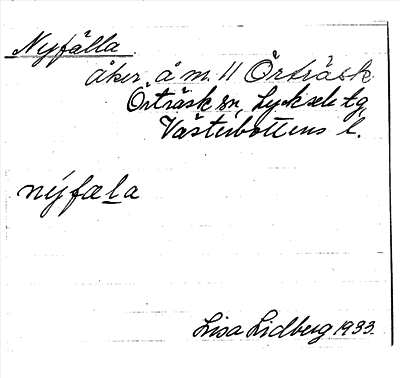 Nyfälla
åker å m. 11 Örträsk
Örträsk sn, Lycksele tg
Västerbottens l.
nýfæla
Lisa Lidberg 1933.